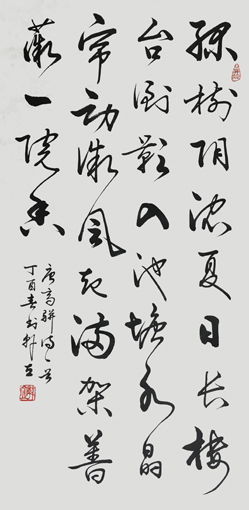 绿樹阴浓夏日长楼
台倒影入池塘水晶
帘动微風起满架蔷
薇一院香
唐高骈诗一首
丁酉春书